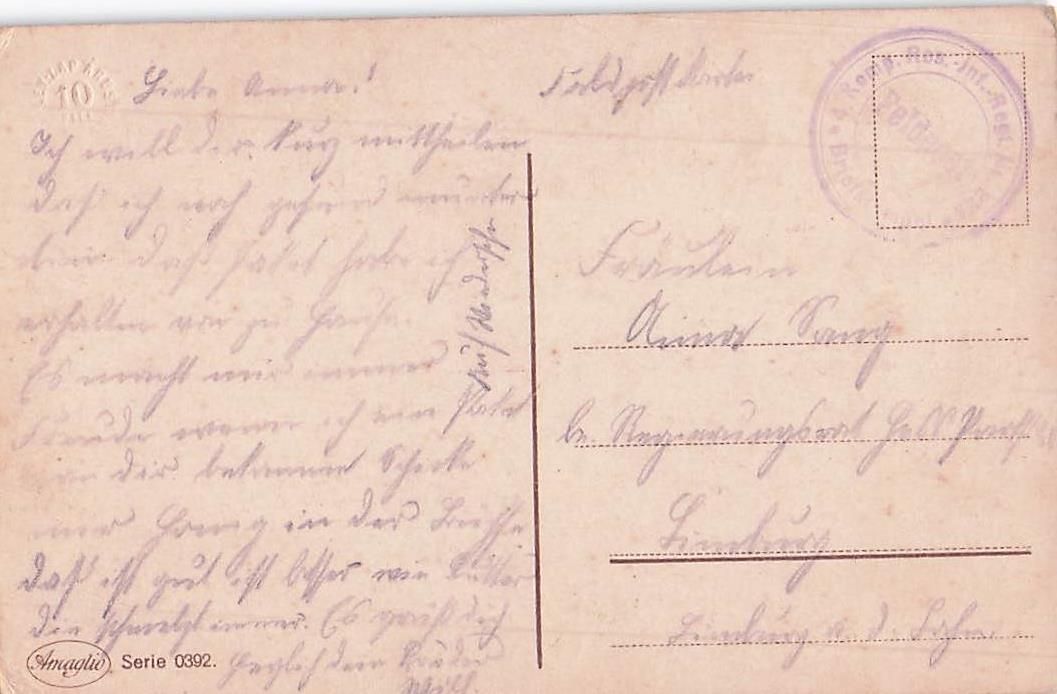 10
Liebe Anna!
Ich will dir kurz mittheilen
daß ich noch gesund munter
bin daß Paket habe ich
erhalten von zu Hause.
Es macht mir immer
Freude wenn ich ein Paket
von dir bekomme Schicke
mir Honig in der Büchse
daß ist gut ist besser wie Butter
die schmelzt immer. Es grüßt dich
herzlich dein Bruder
Will.
Auf Wiedersehn
Amaglio Serie 0392.
Feldpostkarte
4. Komp. Res.-Inf.-Regt. Nr.
Briefstempel
Fräulein
Anna Sang
be. Regierungsrat
Limburg
Limburg a. d. Lahn.